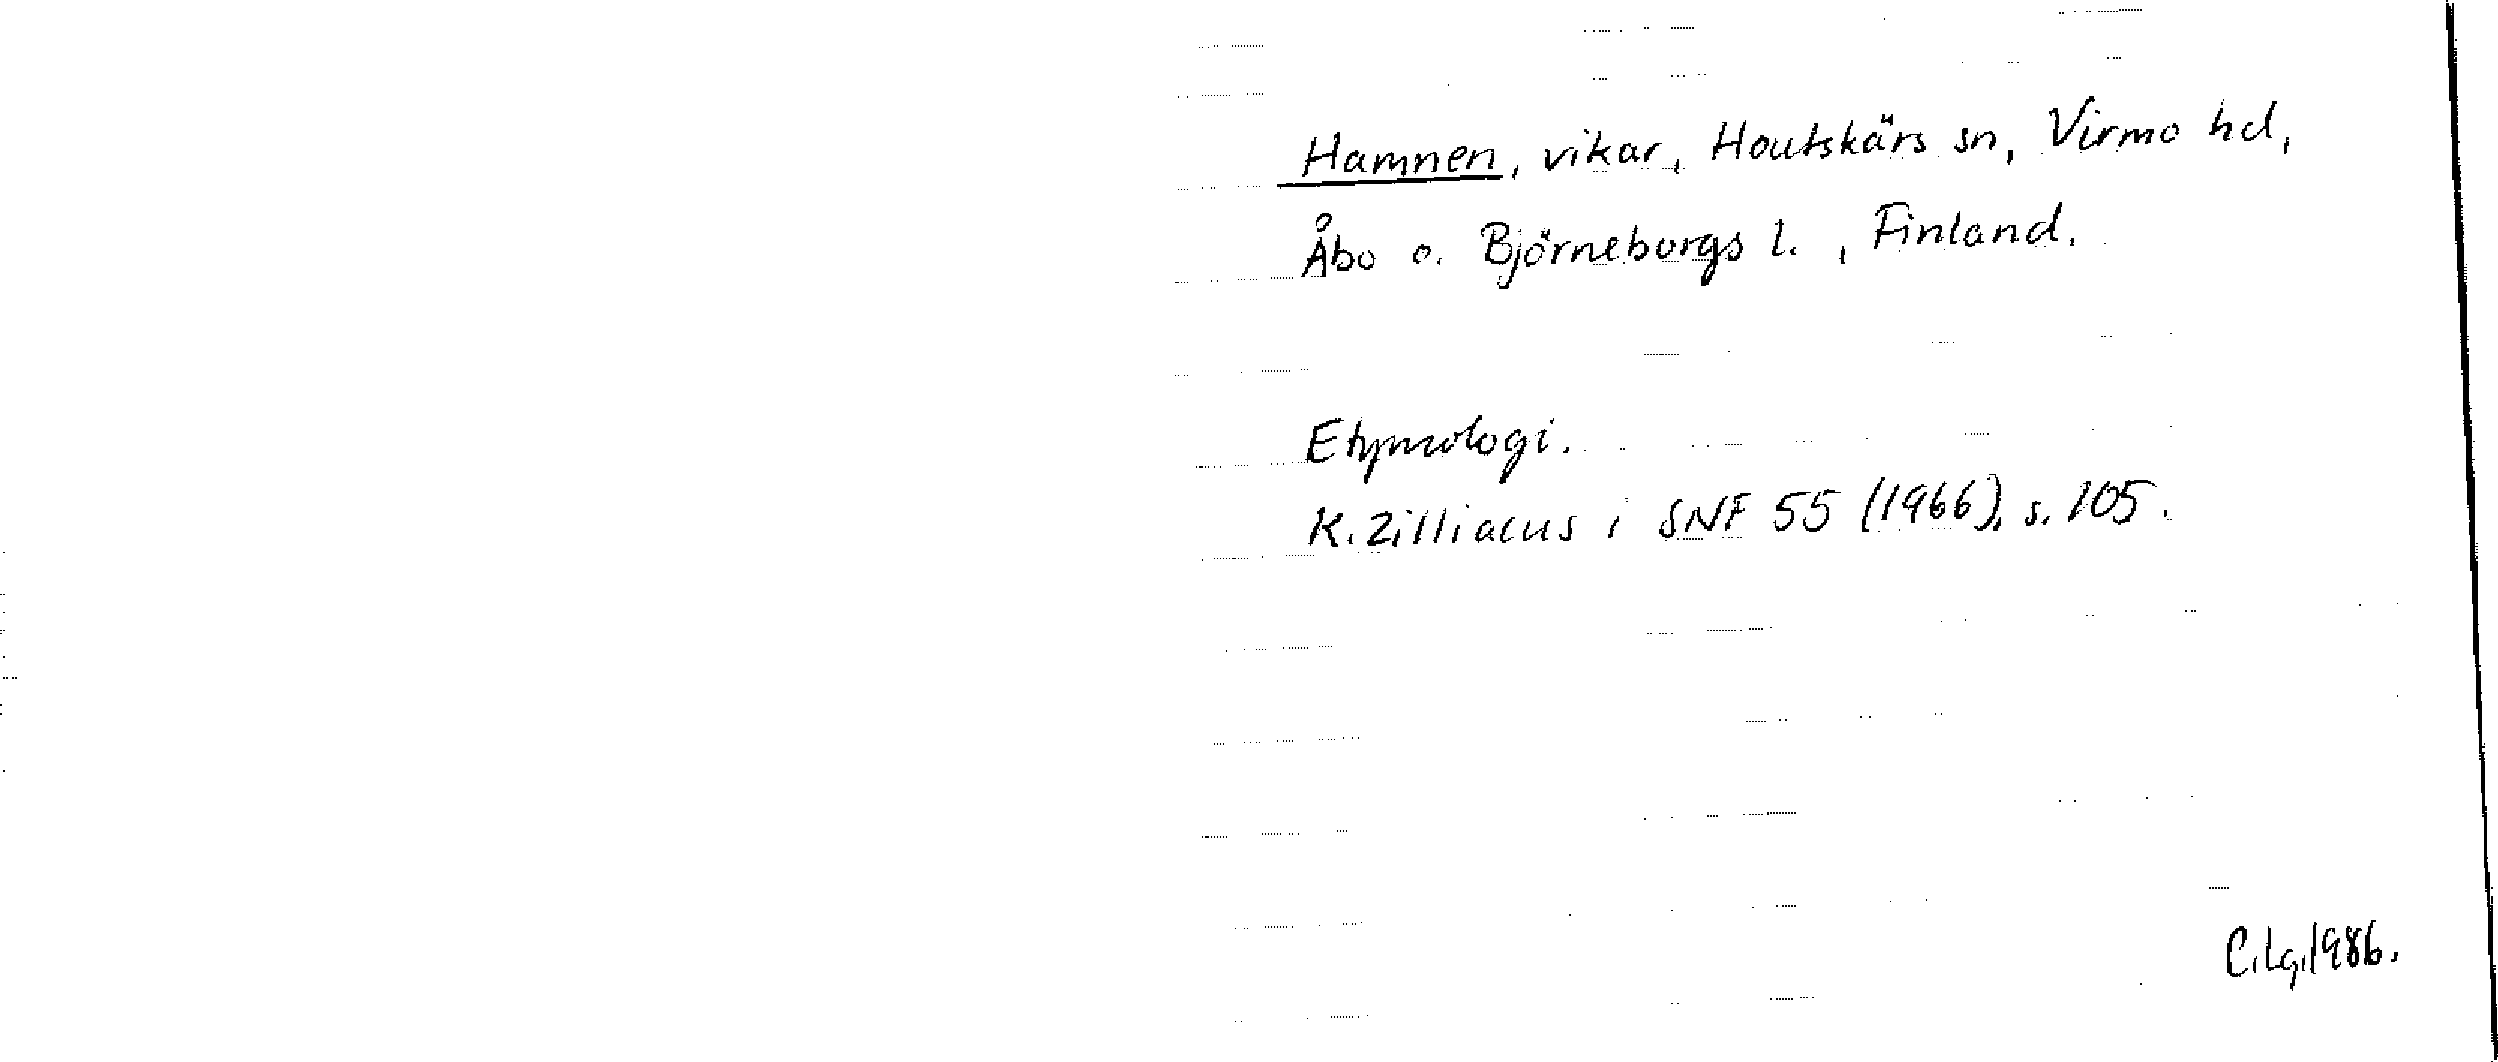 Hamnen, vikar, Houtskärs sn, Virmo hd,
Åbo o. Björneborgs l., Finland.
Etymologi.
K. Zilliacus i SNF 55 (1966), s. 105.
C.Lg.1986.